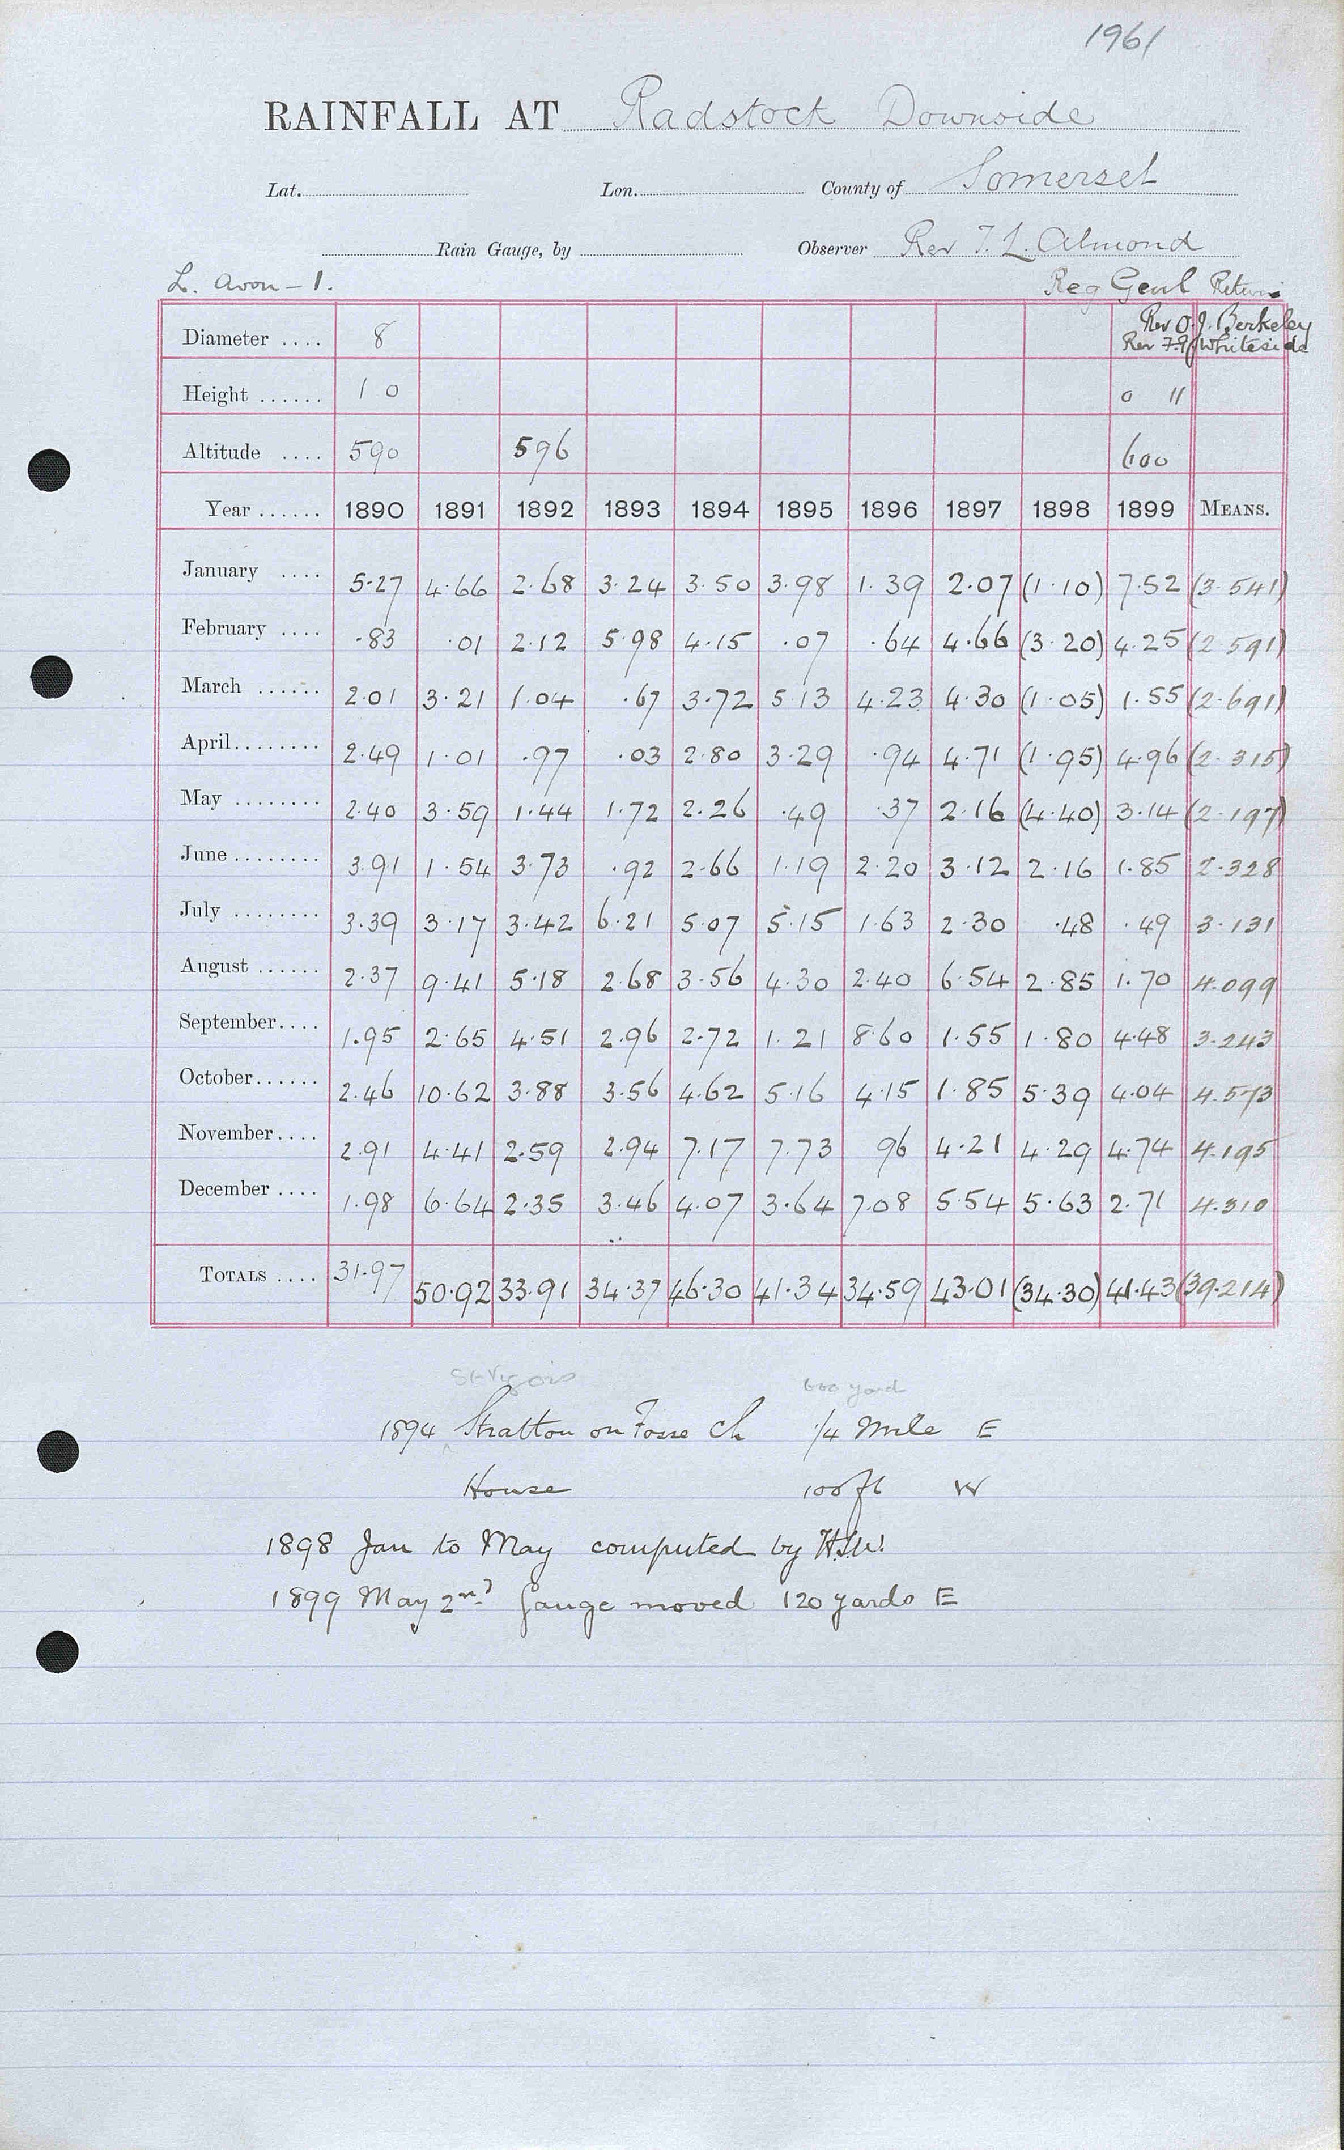 1961
RAINFALL AT Radstock Downside
Lat. Lon. County of Somerset
Rain Gauge, by Observer Rev T. L. Almond
L. Avon - 1. Reg Genl Returns
Rev O. J. Berkeley
Diameter .... 8 Rev F. Whiteside
Height ...... 1 0 0 11
Altitude .... 590 596 600
Year ...... 1890 1891 1892 1893 1894 1895 1896 1897 1898 1899 MEANS.
January .... 5.27 4.66 2.68 3.24 3.50 3.98 1.39 2.07 (1.10) 7.52 (3.541)
February .... .83 .01 2.12 5.98 4.15 .07 .64 4.66 (3.20) 4.25 (2.591)
March ...... 2.01 3.21 1.04 .67 3.72 5.13 4.23 4.30 (1.05) 1.55 (2.691)
April........ 2.49 1.01 .97 .03 2.80 3.29 .94 4.71 (1.95) 4.96 (2.315)
May ........ 2.40 3.59 1.44 1.72 2.26 .49 .37 2.16 (4.40) 3.14 (2.197)
June ........ 3.91 1.54 3.73 .92 2.66 1.19 2.20 3.12 2.16 1.85 2.328
July ........ 3.39 3.17 3.42 6.21 5.07 5.15 1.63 2.30 .48 .49 3.131
August ...... 2.37 9.41 5.18 2.68 3.56 4.30 2.40 6.54 2.85 1.70 4.099
September.... 1.95 2.65 4.51 2.96 2.72 1.21 8.60 1.55 1.80 4.48 3.243
October...... 2.46 10.62 3.88 3.56 4.62 5.16 4.15 1.85 5.39 4.04 4.573
November.... 2.91 4.41 2.59 2.94 7.17 7.73 96 4.21 4.29 4.74 4.195
December .... 1.98 6.64 2.35 3.46 4.07 3.64 7.08 5.54 5.63 2.71 4.310
TOTALS .... 31.97 50.92 33.91 34.37 46.30 41.34 34.59 43.01 (34.30) 41.43 (39.214)
St Vigois 600 yard
1894 Stratton on Fosse Ch 1/4 Mile E
House 100 ft W
1898 Jan to May computed by H.S.W.
1899 May 2nd Gauge moved 120 yards E